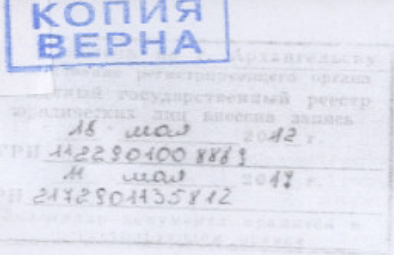 КОПИЯ
ВЕРНА
Архангельску
регистрирующего органа
государственный реестр
юридических лиц внесена запись
18 мая 2012 г.
ГРН 1122901008869
11 мая 2017 г.
РН 2172901135812